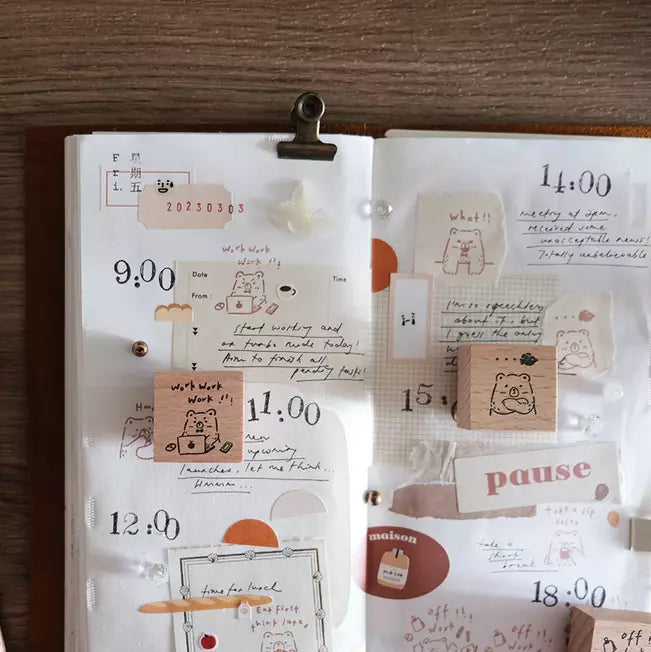 F 星
r 期
i. 五
20230303
9:00
work work
work !!!
Date
Time
From :
start working and
on turbo mode today!
Aim to finish all
pending tasks!
work work
work !!!
11:00
new
upcoming
launches. let me think...
Hmmm...
12:00
time for lunch
Eat first
think later
14:00
what!!
meeting at 2pm.
received some
unacceptable news!
Totally unbelievable
I'm so speechless
about it, but
I guess the only
15:
pause
take a sip
enjoy
maison
take a
short
break
18:00
off !!
work
off !!
work
off !!